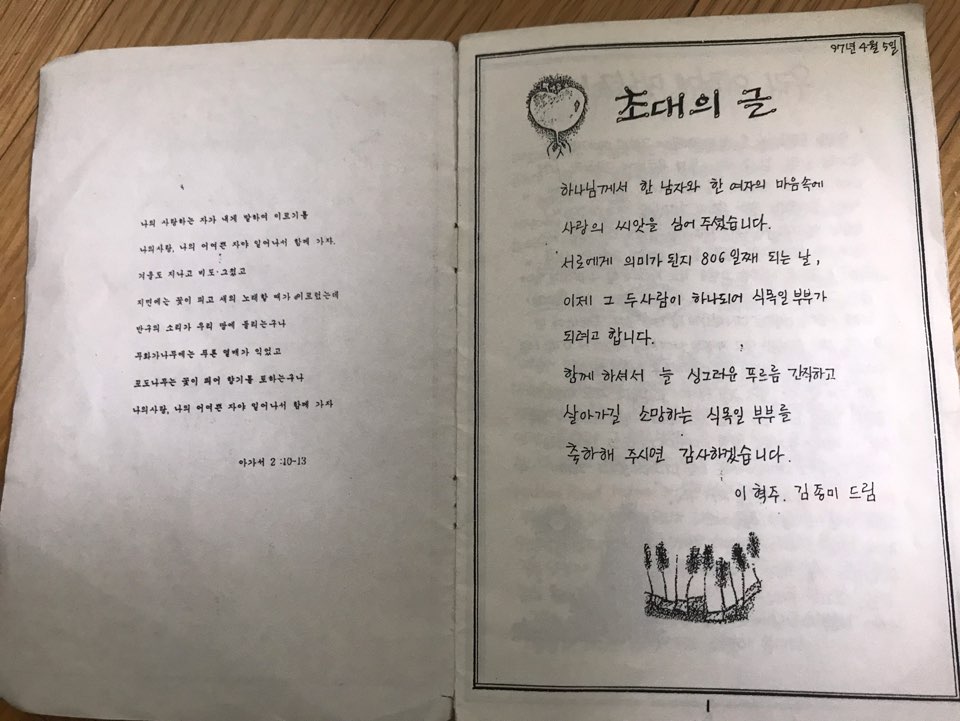 나의 사랑하는 자가 내게 말하여 이르기를
나의사랑, 나의 어여쁜 자야 일어나서 함께 가자.
겨울도 지나고 비도 그쳤고
지면에는 꽃이 피고 새의 노래할 때가 이르렀는데
반구의 소리가 우리 땅에 들리는구나
무화과나무에는 푸른 열매가 익었고
포도나무는 꽃이 피어 향기를 토하는구나
나의사랑, 나의 어여쁜 자야 일어나서 함께 가자
아가서 2 :10-13
97년 4월 5일
초대의 글
하나님께서 한 남자와 한 여자의 마음속에
사랑의 씨앗을 심어 주셨습니다.
서로에게 의미가 된지 806일째 되는 날,
이제 그 두사람이 하나되어 식목일 부부가
되려고 합니다.
함께 하셔서 늘 싱그러운 푸르름 간직하고
살아가길 소망하는 식목일 부부를
축하해 주시면 감사하겠습니다.
이혁주. 김종미 드림
1